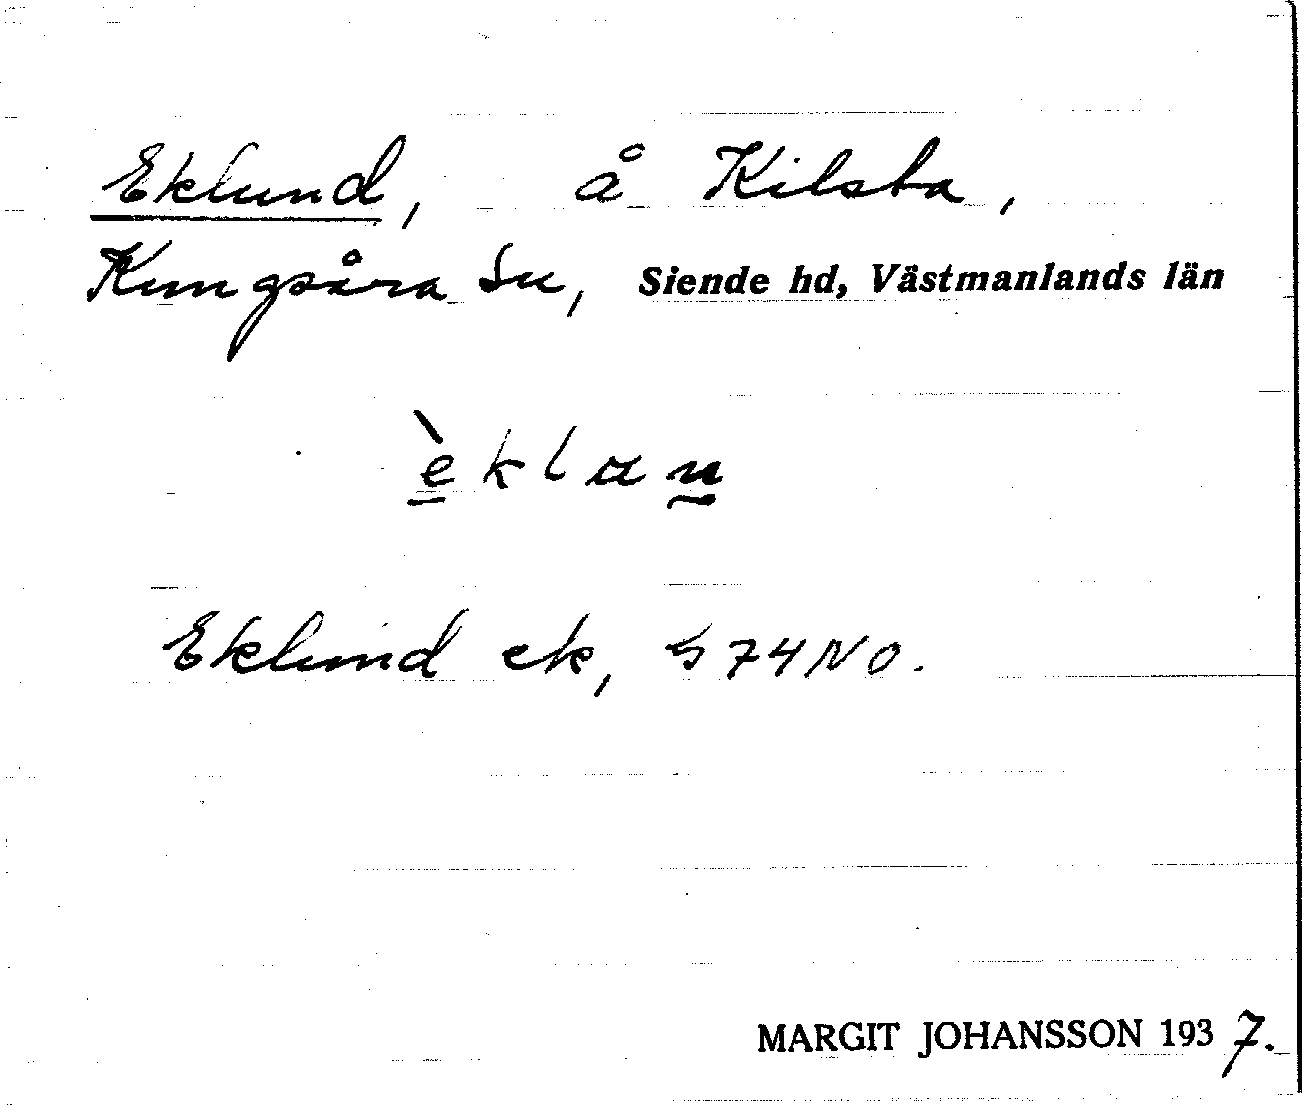 Eklund, å Kilsta,
Kungsåra sn, Siende hd, Västmanlands län
èklun
Eklund ek, S74NO.
MARGIT JOHANSSON 1937.